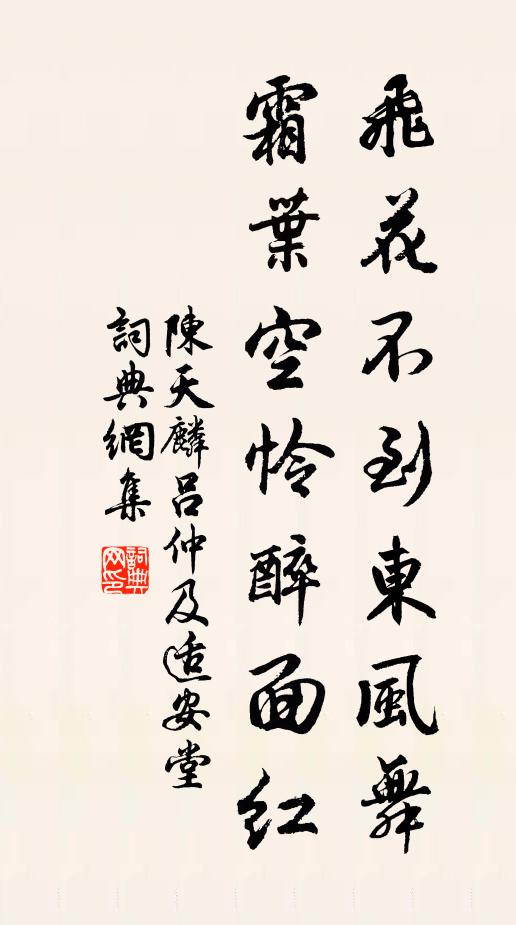 飛花不到東風舞
霜葉空怜醉面紅
陳天麟呂仲及适安堂
詞典網集
詞典网印